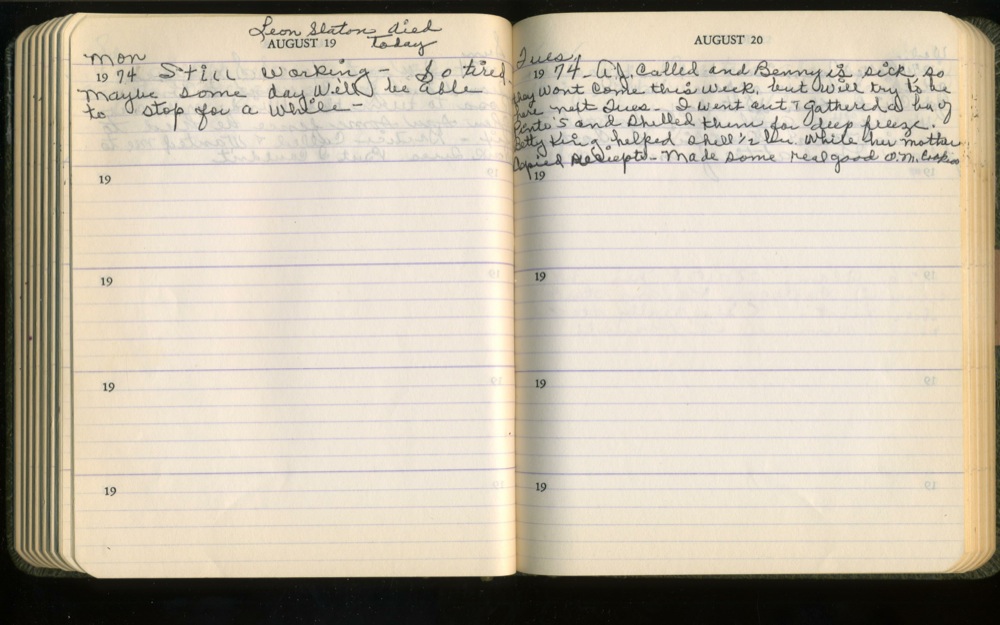 Leon Slaton died
AUGUST 19 today
Mon
1974 Still working - So tired -
Maybe some day We'll be able
to stop for a while -
19
19
19
19
AUGUST 20
Tues
1974 - A.J. Called and Benny is sick, so
they wont Come this week, but will try to be
here next Tues. - I went out & gathered a bu of
Pinto's and shelled them for deep freeze.
Betty King helped shell 1/2 hr. While her mother
Copied Reciepts - Made some real good O.M. Cookies
19
19
19
19